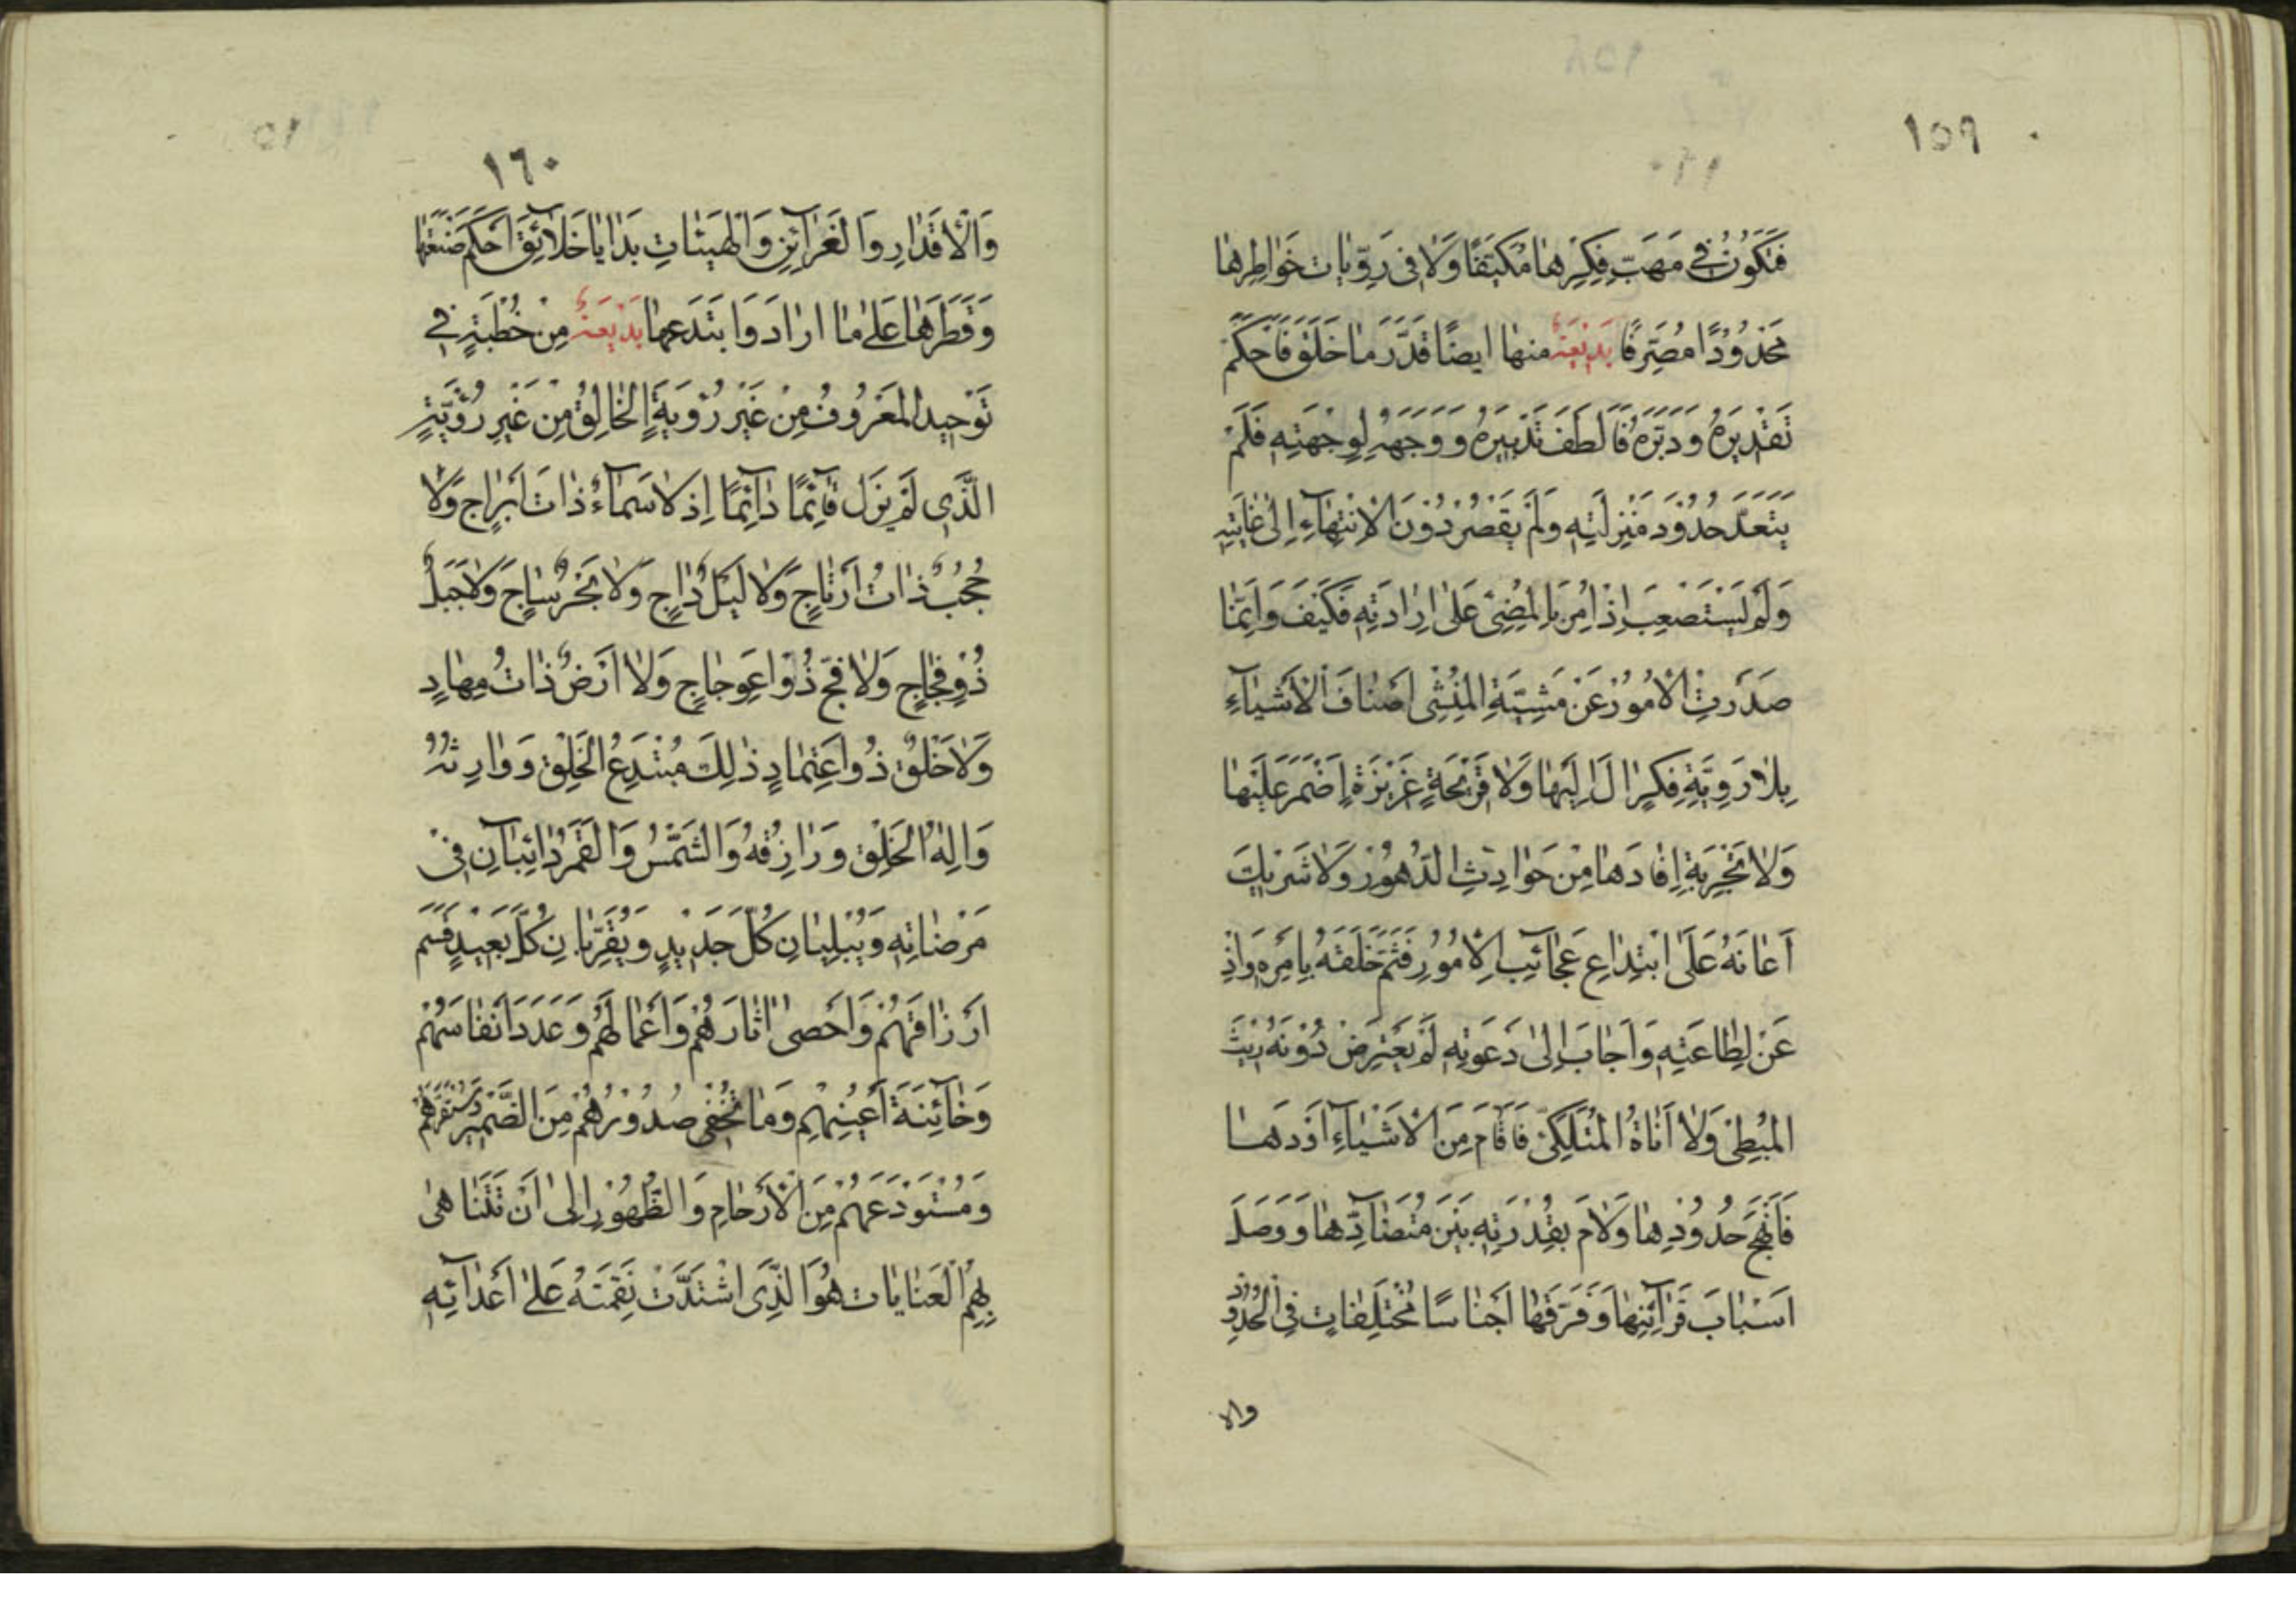 ١٥٩
فَتَكُوُنُ فِي مَهَبِّ فِكِرِهٰا مُكَيَّفًا وَلٰا فِى رَوِّيٰات خَوٰاطِرِهٰا
مَحْدُوُدًا مُصَرَّفًا بَدْيعَةٌ منهٰا ايضًا قَدَّرَ مٰا خَلَقَ فَاَحْكَمْ
تَقْدِيَرهُ وَدَبَّرَهُ فَاَلطَفَ تَدْبيرَهُ وَوَجَهَهُ لِوِجْهَتِهِ فَلَمْ
يَتَعَدَّ حُدُوُدَ مَنْزِلَتِهِ وَلَمْ يَقْصُرْ دُوُنَ الْاِنْتِهٰآءِ اِلىٰ غٰايَتِهِ
وَلَمْ يَسْتَصْعِبَ اِذْ اُمِرَ بِالمُضِىّ عَلىٰ اِرٰادَتِهِ فَكَيْفَ وَاِنَّمٰا
صَدَرَتِ الْاُمُوُرُ عَنْ مَشِيَّةِ المُنْشِى اَصْنٰافَ الْاَشْيٰآءِ
بِلٰا رَوِيَّةِ فِكِرٍ اٰلَ اِلَيْهٰا وَلٰا قَرْيحَةٍ غَرْيزَةٍ اَضْمَرَ عَلَيْهٰا
وَلٰا تَجْرِبَةٍ اِفٰادَهٰا مِنْ حَوٰادِثِ الدُّهُوُرِ وَلٰا شَرْيكٍ
اَعٰانَهُ عَلَى ابْتِدٰاعِ عَجٰائِبِ الْاُمُوُرِ فَتَمَّ خَلَقَهُ بِاَمْرِهِ وَاذِ
عَنْ لِطٰاعَتِهِ وَاَجٰابَ اِلىٰ دَعْوَتِهِ لَمْ يَعْتَرِضْ دُوُنَهُ رَيْثُ
المُبْطِىْ وَلٰا اَنٰاةُ المُتَلَكِّىْ فَاَقٰامَ مِنَ الْاَشْيٰآءِ اَوَدَهٰا
فَاَنْهَجَ حُدُوُدِهٰا وَلٰامَ بِقُدْرَتِهِ بَيْنَ مُتَضٰآدِّهٰا وَوَصَلَ
اَسْبٰابَ قَرٰآئِنِهٰا وَفَرَّقَهٰا اَجْنٰاسًا مُخْتَلِفٰاتٍ فِى الْحُدُوُدِ
والا
١٦٠
وَالْاَقْدٰارِ وَالغَرٰآئِزِ وَالْهَيْئٰاتِ بَدٰايٰا خَلٰآئِقَ اَحْكَمَ صُنْعَهٰا
وَفَطَرَهٰا عَلىٰ مٰا ارٰادَ وَابْتَدَعَهٰا بَدْيعَةٌ مِنْ خُطْبَةٍ في
تَوْحيدِ المَعْرُوُفُ مِنْ غَيْرِ رُوْيَةٍ الخٰالِقُ مِنْ غَيْرِ رُؤْيَّةٍ
الَّذِى لَمْ يَزَل قٰآئِمًا دٰآئِمًا اِذ لٰا سَمٰآءُ ذٰاتَ اَبْرٰاجٍ وَلٰا
حُجُبٌ ذٰاتُ اَرْتٰاجٍ وَلٰا لَيْلٌ دٰاجٍ وَلٰا بَحْرٌ سٰاجٍ وَلٰا جَبَلٌ
ذُوْ فِجٰاجٍ وَلٰا فَجّ ذُوْ اعِوِجٰاجٍ وَلٰا اَرْضٌ ذٰاتُ مِهٰادٍ
وَلٰا خَلْقٌ ذُو اعْتِمٰادٍ ذٰلِكَ مُبْتَدِعُ الْخَلِقِ وَوٰارِثُهُ
وَاِلٰهُ الْخَلِقِ وَرٰازِقُهُ وَالشَّمْسُ وَالقَمَرُ دٰائِبٰآنِ فِىْ
مَرْضٰاتِهِ وَيُبْلِيٰانِ كُلَّ جَدْيدٍ وَيُقَرِّبٰانِ كُلَّ بَعيدٍ قَسَمَ
اَرْزٰاقَهُمْ وَاَحْصىٰ اٰثٰارَهُمْ وَاَعْمٰالَهُمْ وَعَدَدَ اَنفٰاسَهُمْ
وَخٰآئِنَةَ اَعْيُنِهِمْ وَمٰا تُخْفِى صُدُوُرُهُمْ مِنَ الضَّمِيْرِ وَمُسْتَقَرَّهُمْ
وَمُسْتَوْدَعَهُمْ مِنَ الْاَرْحٰامِ وَالظُّهُوُرِ اِلىٰ اَنْ تَتَنٰاهىٰ
بِهِمُ الْغٰايٰات هُوَ الَّذِى اشْتَدَّتْ نَقِمَتَهُ عَلىٰ اَعْدٰآئِهِ